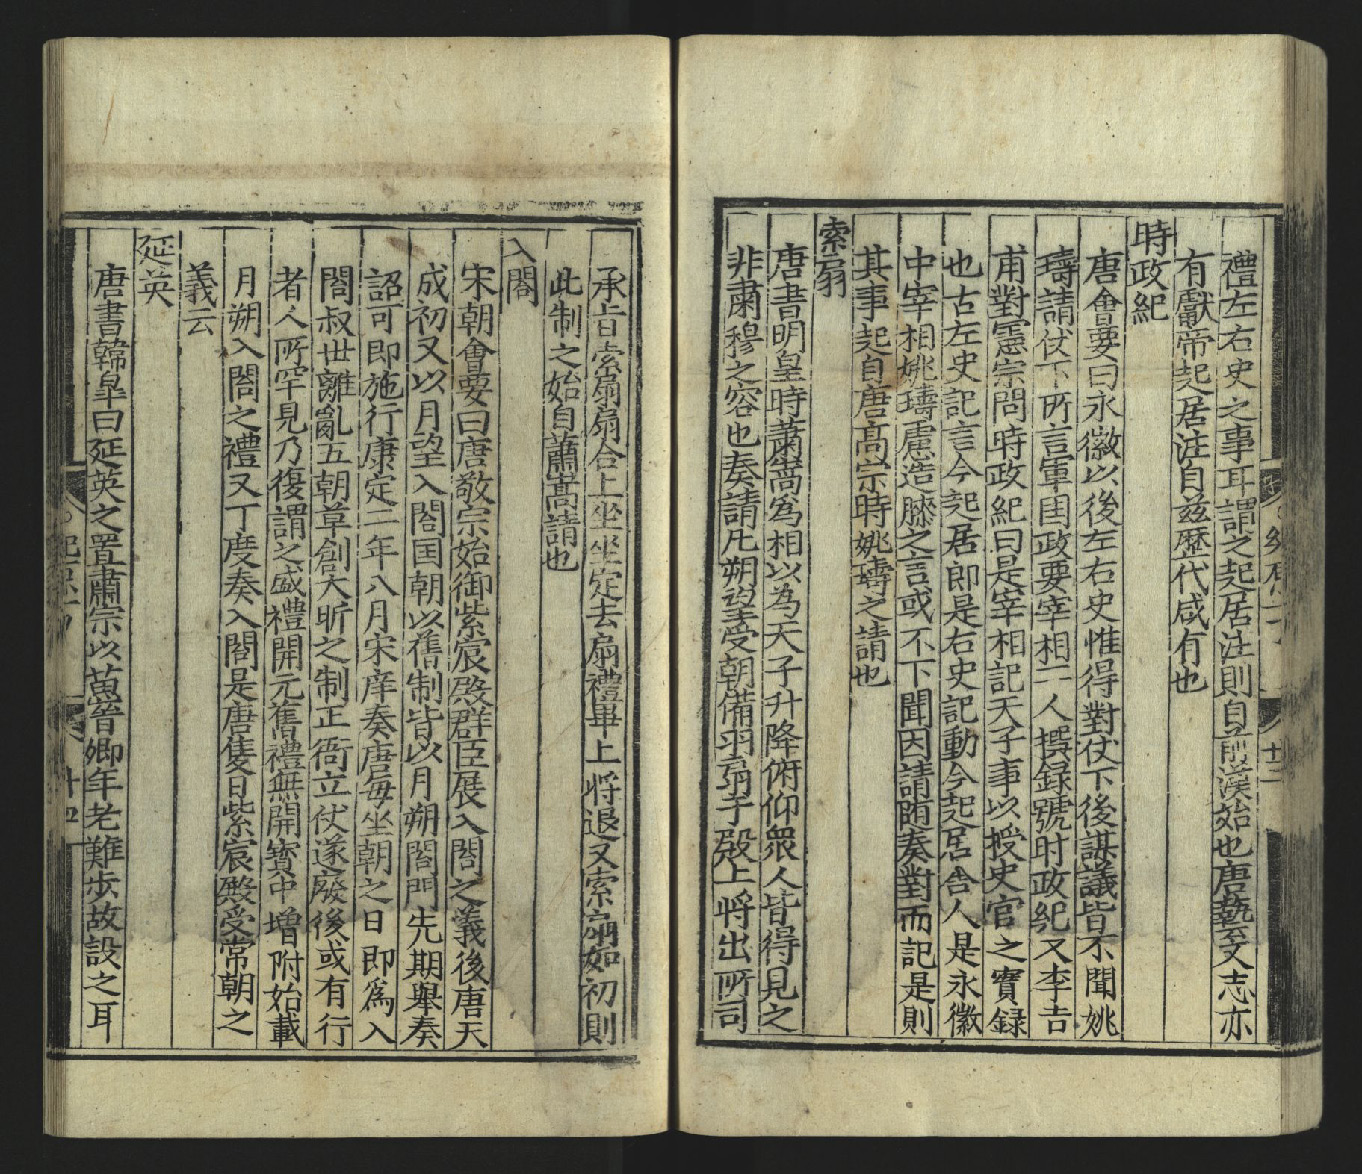 禮左右史之事耳謂之起居注則自前漢始也唐藝文志亦
有獻帝起居注自兹歷代咸有也
時政紀
唐會要曰永徽以後左右史惟得對仗下後謀議皆不聞姚
璹請仗下所言軍国政要宰相一人撰録號时政紀又李吉
甫對憲宗問時政紀曰是宰相記天子事以授史官之實録
也古左史記言今起居郎是右史記動今起居舎人是永徽
中宰相姚璹慮造膝之言或不下聞因請随奏對而記是則
其事起自唐髙宗時姚璹之請也
索扇
唐書明皇時蕭嵩為相以為天子升降俯仰衆人皆得見之
非肅穆之容也奏請凡朔望受朝備羽扇于殿上将出所司
承旨索扇扇合上坐坐定去扇禮畢上将退又索扇如初則
此制之始自蕭嵩請也
入閤
宋朝會要曰唐敬宗始御紫宸殿群臣展入閤之義後唐天
成初又以月望入閤国朝以舊制皆以月朔閤門先期舉奏
詔可即施行康定二年八月宋庠奏唐毎坐朝之日即爲入
閤叔世離亂五朝草創大昕之制正衙立仗遂廢後或有行
者人所罕見乃復謂之盛禮開元舊禮無開寳中增附始載
月朔入閤之禮又丁度奏入閤是唐隻日紫宸殿受常朝之
義云
延英
唐書韓皐曰延英之置肅宗以苖晉卿年老難步故設之耳
十四